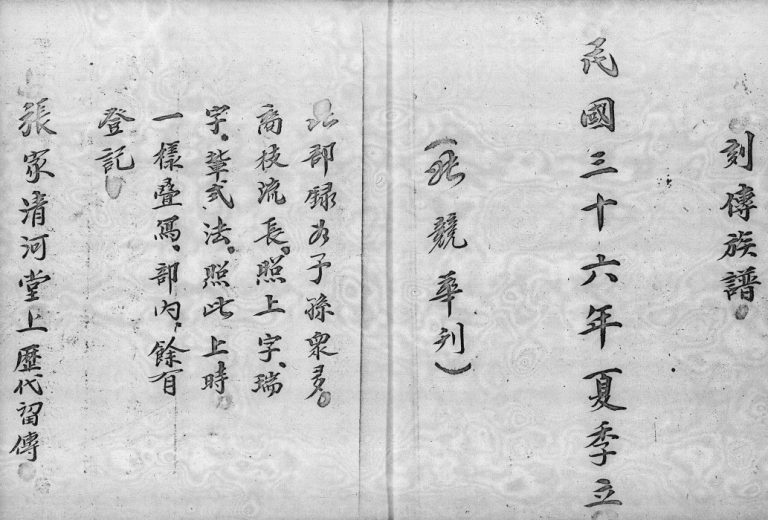 刻傳族譜。
民國三十六年夏季立
(張競華列)
此部錄為子孫衆多。
裔枝流長。照上字、瑞
字。輩式法。照此上時
一樣疊寫。部内、餘有
登記。
張家清河堂上歷代留傳。